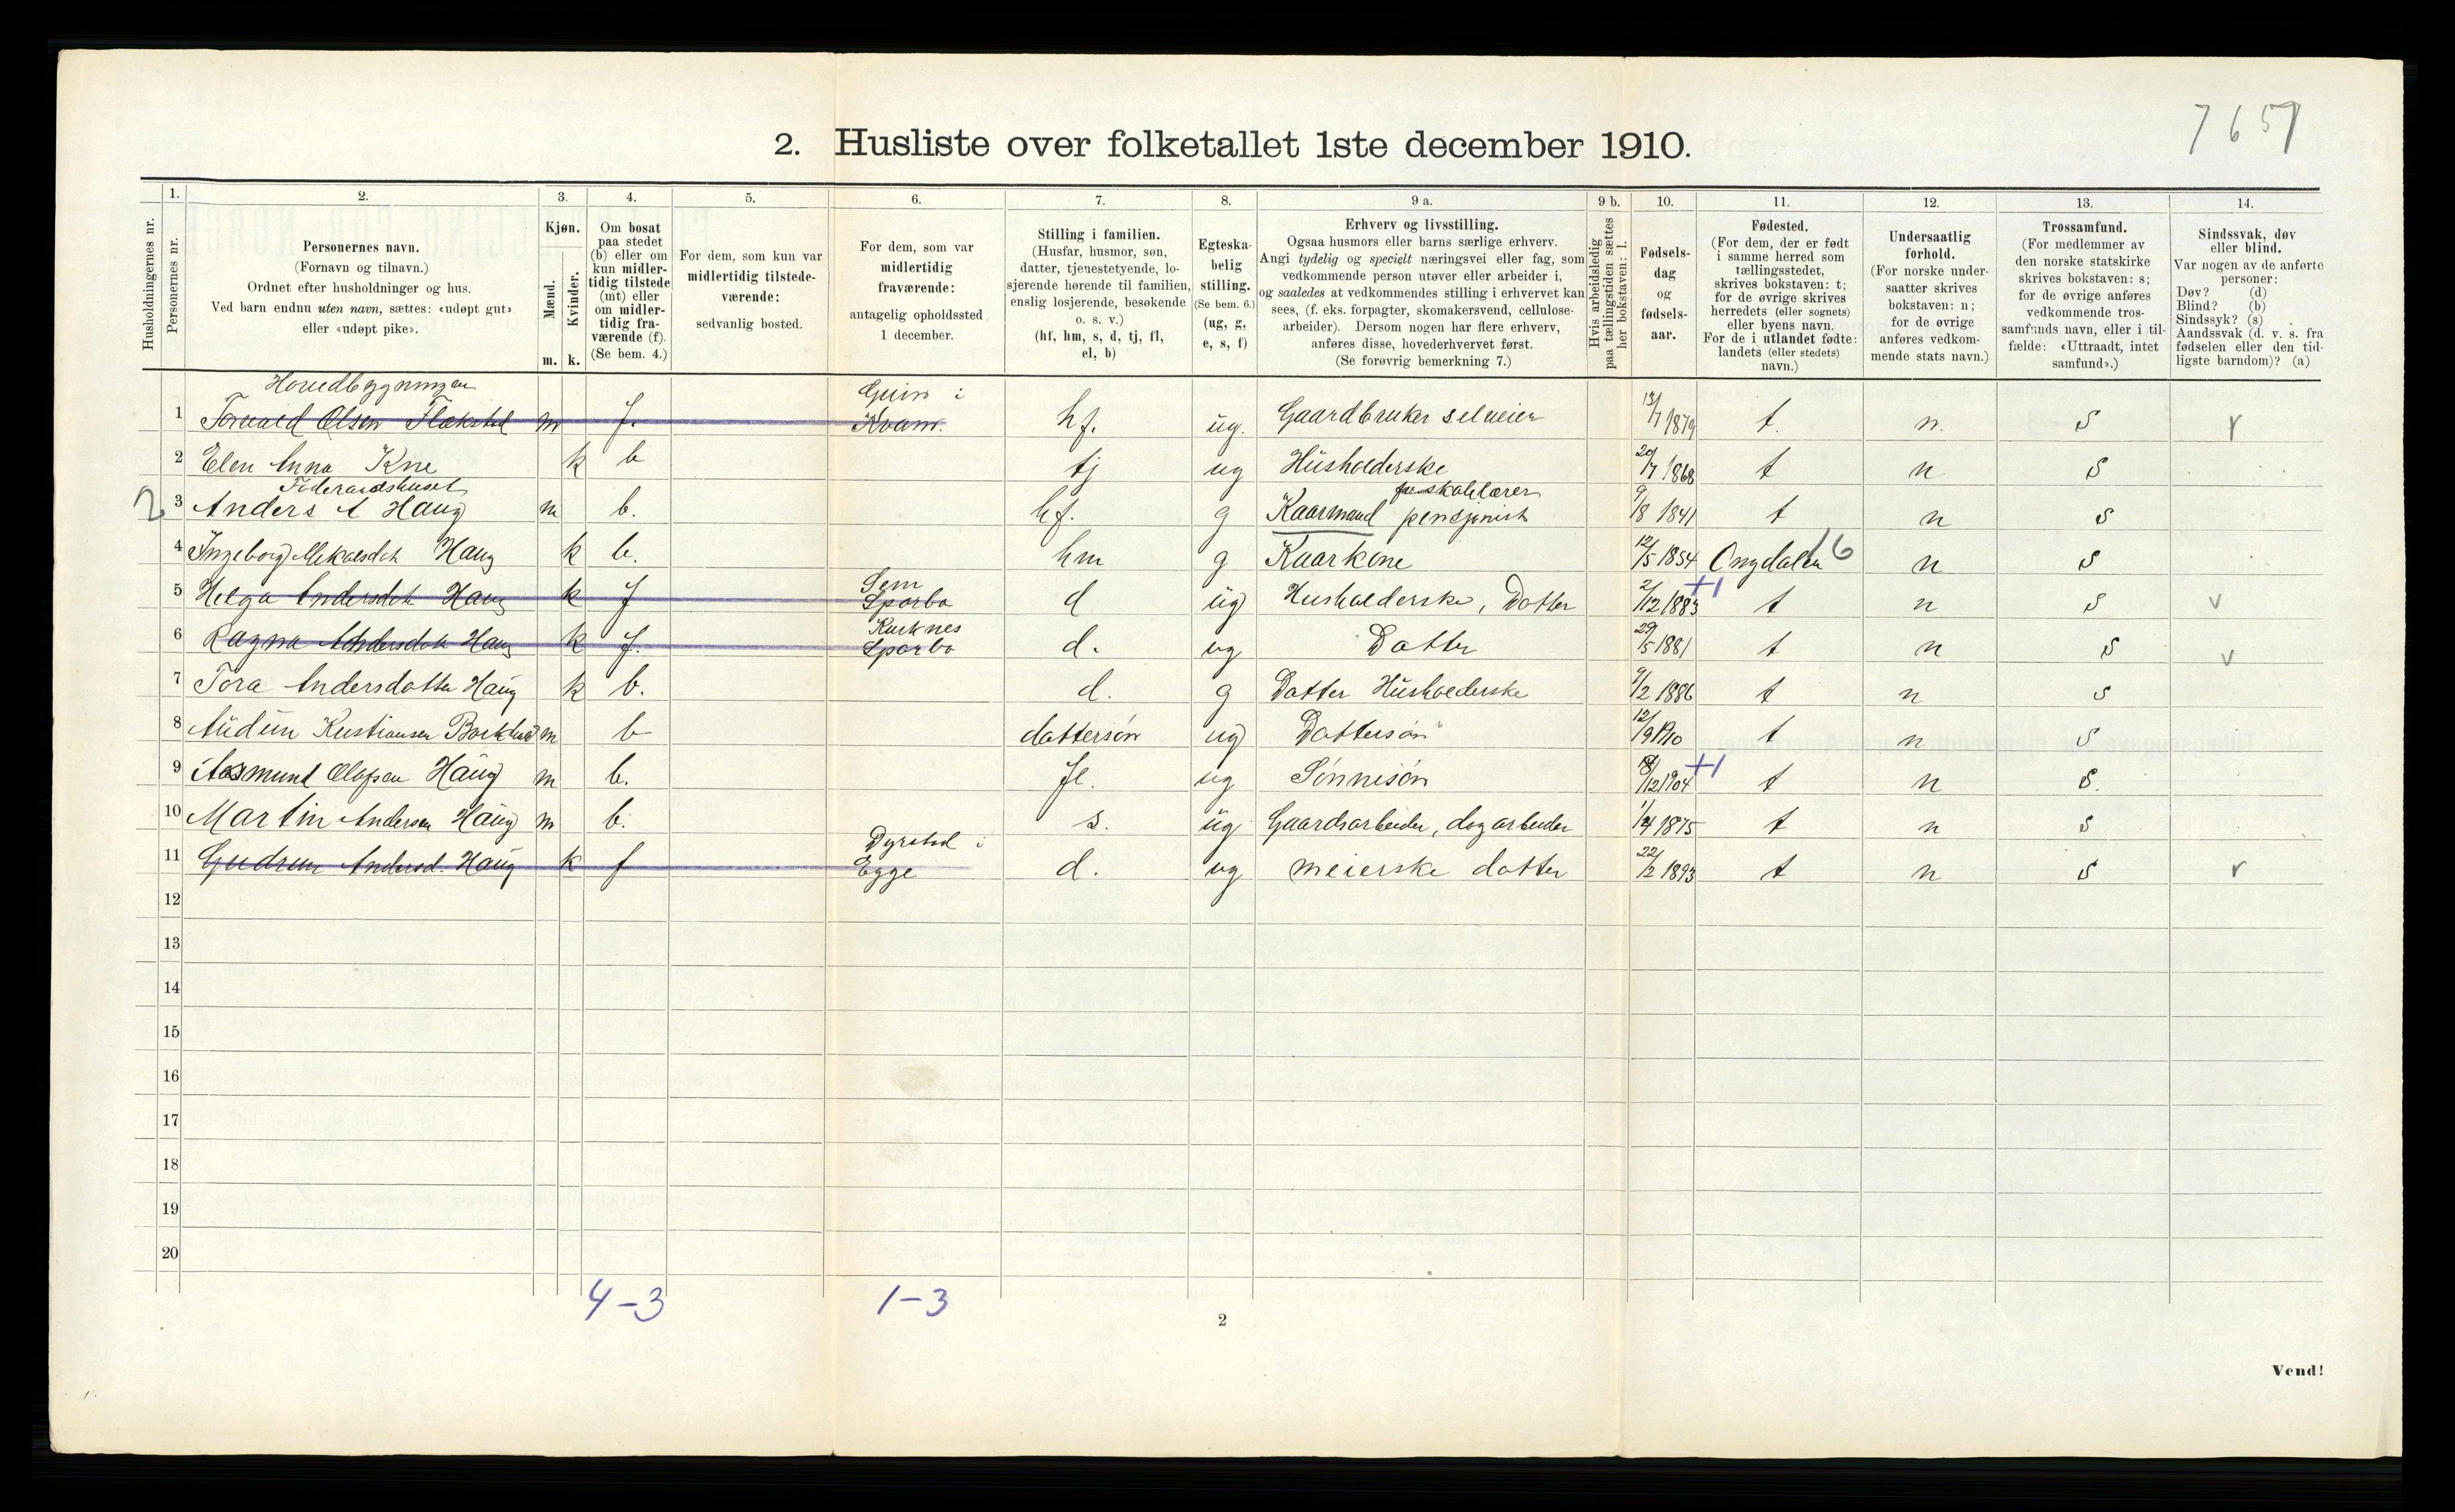 7 6 57
2. Husliste over folketallet 1ste december 1910.
Husholdningernes nr.
1. Personernes nr.
2. Personernes navn.
(Fornavn og tilnavn.)
Ordnet efter husholdninger og hus.
Ved barn endnu uten navn, sættes: «udøpt gut»
eller «udøpt pike».
3. Kjøn.
Mænd. m.
Kvinder. k.
4. Om bosat
paa stedet
(b) eller om
kun midler-
tidig tilstede
(mt) eller
om midler-
tidig fra-
værende (f).
(Se bem. 4.)
5. For dem, som kun var
midlertidig tilstede-
værende:
sedvanlig bosted.
6. For dem, som var
midlertidig
fraværende:
antagelig opholdssted
1 december.
7. Stilling i familien.
(Husfar, husmor, søn,
datter, tjenestetyende, lo-
sjerende hørende til familien,
enslig losjerende, besøkende
o. s. v.)
(hf, hm, s, d, tj, fl,
el, b)
8. Egteska-
belig
stilling.
(Se bem. 6.)
(ug, g,
e, s, f)
9 a. Erhverv og livsstilling.
Ogsaa husmors eller barns særlige erhverv.
Angi tydelig og specielt næringsvei eller fag, som
vedkommende person utøver eller arbeider i,
og saaledes at vedkommendes stilling i erhvervet kan
sees, (f. eks. forpagter, skomakersvend, cellulose-
arbeider). Dersom nogen har flere erhverv,
anføres disse, hovederhvervet først.
(Se forøvrig bemerkning 7.)
9 b. Hvis arbeidsledig
paa tællingstiden sættes
her bokstaven: l.
10. Fødsels-
dag
og
fødsels-
aar.
11. Fødested.
(For dem, der er født
i samme herred som
tællingsstedet,
skrives bokstaven: t;
for de øvrige skrives
herredets (eller sognets)
eller byens navn.
For de i utlandet fødte:
landets (eller stedets)
navn.)
12. Undersaatlig
forhold.
(For norske under-
saatter skrives
bokstaven: n;
for de øvrige
anføres vedkom-
mende stats navn.)
13. Trossamfund.
(For medlemmer av
den norske statskirke
skrives bokstaven: s;
for de øvrige anføres
vedkommende tros-
samfunds navn, eller i til-
fælde: «Uttraadt, intet
samfund».)
14. Sindssvak, døv
eller blind.
Var nogen av de anførte
personer:
Døv? (d)
Blind? (b)
Sindssyk? (s)
Aandssvak (d. v. s. fra
fødselen eller den tid-
ligste barndom)? (a)
Hovedbygningen
1 Olsen m f. i Kvam. hf. ug. Gaardbruker selveier 13/7 1879 t. n. S v
2 Elen Anna Kne k b tj ug Husholderske 20/7 1868 t n S
Föderaadshuset
2 3 Anders A Haug m b. hf. g Kaarmand pensjonist 9/8 1841 t n S
4 Ingeborg Haug k b. hm g Kaarkone 12/5 1854 16 n S
5 Helga Andersdtr Haug k f Sem Sparbo d ug Husholderske, Datter 2/12 1883 +1 t n S v
6 Ragna Andersdtr Haug k f. Sparbo d. ug Datter 29/5 1881 t n S v
7 Tora Andersdatter Haug k b. d. g Datter Husholderske 9/2 1886 t n S
8 Audun Kristiansen m b dattersön ug Dattersön 12/9 1910 t n S
9 Aasmund Olafsen Haug m b. fl. ug Sönnesön 18/12 1904 +1 t n S.
10 Martin Andersen Haug m b. s. ug Gaardsarbeider, dagarbeider 1/4 1875 t n S
11 Gudrun Andersd. Haug k f Dyrstad i Egge d. ug meierske datter 22/2 1893 t n S v
12
13
14
15
16
17
18
19
20
4-3 1-3
2
Vend!